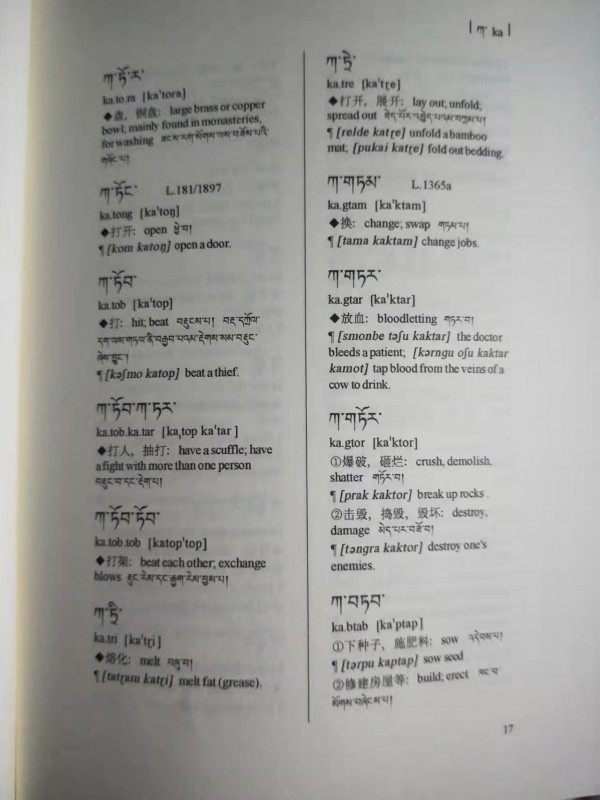 | ཀ་ ka |
ཀ་ཏོ་ར་
ka.to.ra [kaˈtora]
◆盘，铜盘：large brass or copper
bowl; mainly found in monasteries,
for washing ཟངས་རག་སོགས་ལས་བཟོས་པའི་
གཞོང་པ།
ཀ་ཏོང་ L.181/1897
ka.tong [kaˈtoŋ]
◆打开：open ཕྱེ་བ།
¶ [kom katoŋ] open a door.
ཀ་ཏོབ་
ka.tob [kaˈtop]
◆打：hit; beat བརྡུངས་པ།
¶ [kəʃmo katop] beat a thief.
ཀ་ཏོབ་ཀ་ཏར་
ka.tob.ka.tar [kaˌtop kaˈtar ]
◆打人，抽打：have a scuffle; have
a fight with more than one person
བརྡུང་བ་དང་རྡེག་པ།
ཀ་ཏོབ་ཏོབ་
ka.tob.tob [katopˈtop]
◆打架：beat each other; exchange
blows རྡུང་རེས་དང་རྒྱག་རེས་བྱས་པ།
ཀ་ཏྲི་
ka.tri [kaˈtṛi]
◆熔化：melt བཞུ་བ།
¶ [tatṛam katṛi] melt fat (grease).
ཀ་ཏྲེ་
ka.tre [kaˈtṛe]
◆打开，展开：lay out; unfold;
spread out
¶ [relde katṛe] unfold a bamboo
mat; [pukai katṛe] fold out bedding.
ཀ་གཏམ་ L.1365a
ka.gtam [kaˈktam]
◆换：change; swap གཏམ་པ།
¶ [tama kaktam] change jobs.
ཀ་གཏར་
ka.gtar [kaˈktar]
◆放血：bloodletting གཏར་བ།
¶ [smonbe təʃu kaktar] the doctor
bleeds a patient; [kərngu oʃu kaktar
kamot] tap blood from the veins of a
cow to drink.
ཀ་གཏོར་
ka.gtor [kaˈktor]
①爆破，砸烂：crush, demolish,
shatter གཏོར་བ།
¶ [prak kaktor] break up rocks .
②击毁，捣毁，毁坏：destroy,
damage མེད་པར་བཟོ་བ།
¶ [təngra kaktor] destroy one's
enemies.
ཀ་བཏབ་
ka.btab [kaˈptap]
①下种子，施肥料：sow འདེབས་པ།
¶ [tərpu kaptap] sow seed
②修建房屋等：build; erect ཟང་བ་
སོགས་བཞེངས་པ།
17